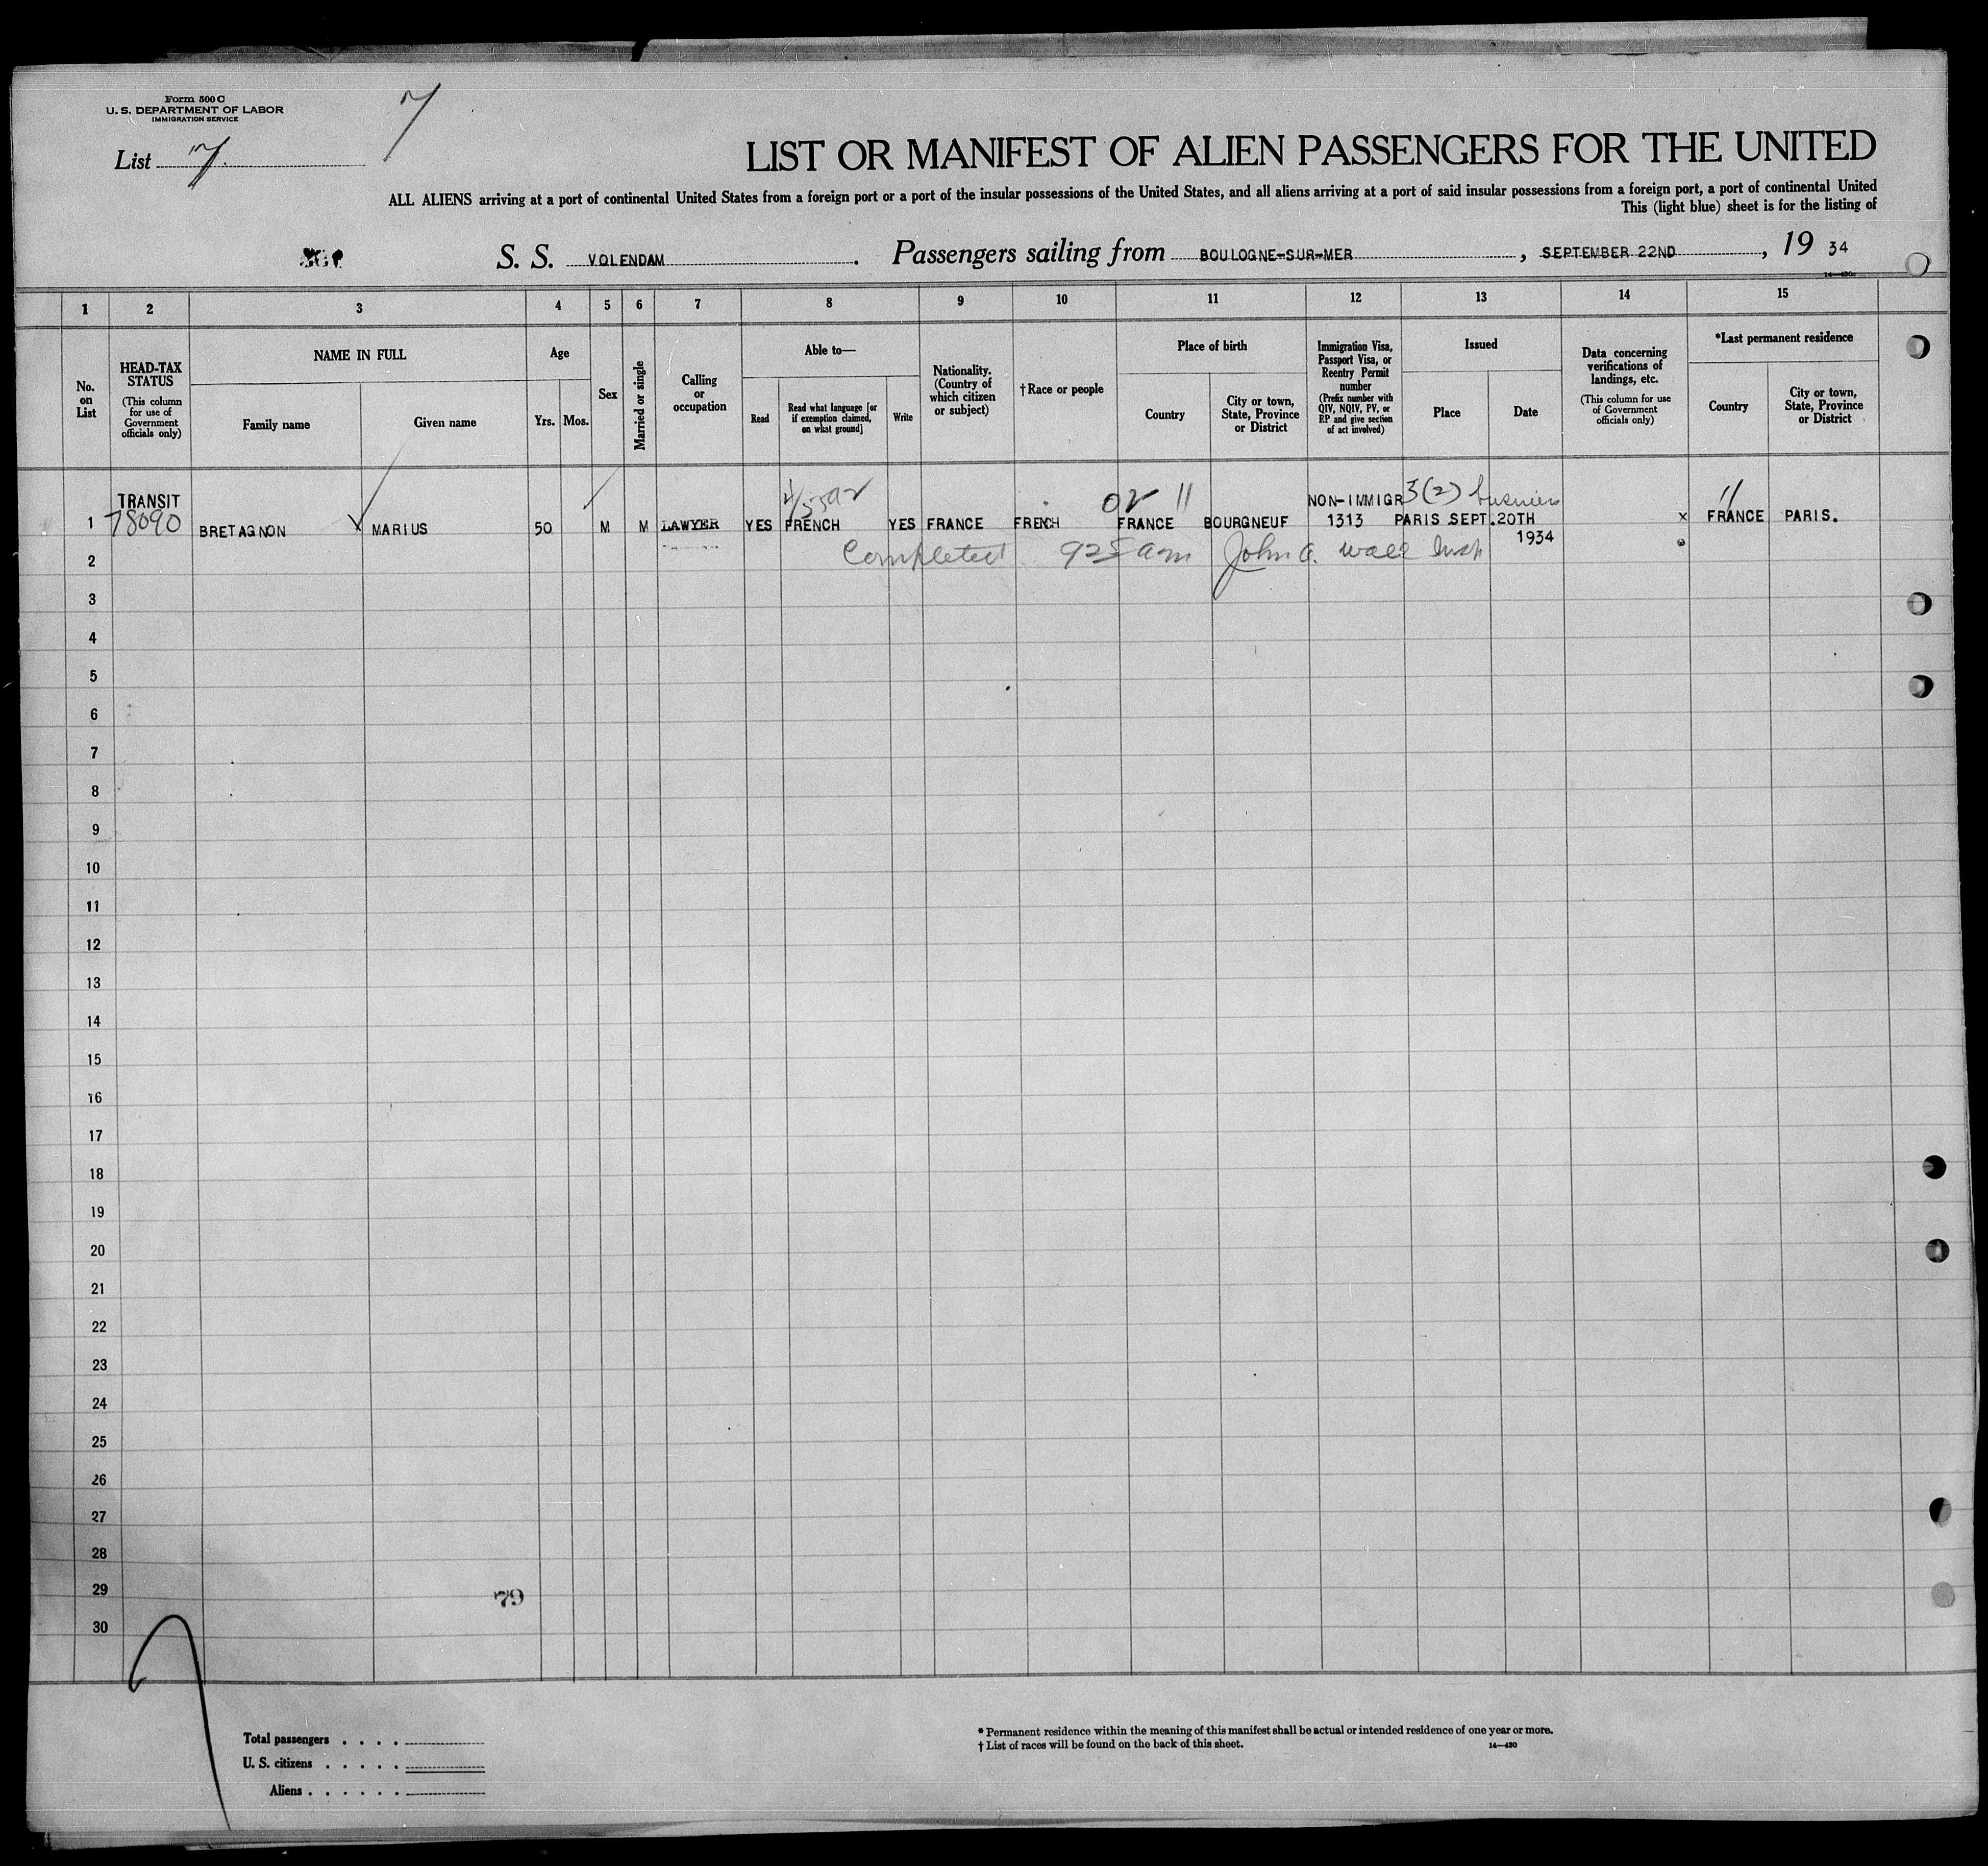 Form 500 C
U. S. DEPARTMENT OF LABOR
IMMIGRATION SERVICE
7
List 7.
LIST OR MANIFEST OF ALIEN PASSENGERS FOR THE UNITED
ALL ALIENS arriving at a port of continental United States from a foreign port or a port of the insular possessions of the United States, and all aliens arriving at a port of said insular possessions from a foreign port, a port of continental United
This (light blue) sheet is for the listing of
S. S. VOLENDAM. Passengers sailing from BOULOGNE-SUR-MER, SEPTEMBER 22ND, 19 34
1 2 3 4 5 6 7 8 9 10 11 12 13 14 15
No. on List
HEAD-TAX STATUS
(This column for use of Government officials only)
NAME IN FULL
Family name
Given name
Age
Yrs.
Mos.
Sex
Married or single
Calling or occupation
Able to—
Read
Read what language [or if exemption claimed, on what ground]
Write
Nationality. (Country of which citizen or subject)
†Race or people
Place of birth
Country
City or town, State, Province or District
Immigration Visa, Passport Visa, or Reentry Permit number
(Prefix number with QIV, NQIV, PV, or RP and give section of act involved)
Issued
Place
Date
Data concerning verifications of landings, etc.
(This column for use of Government officials only)
*Last permanent residence
Country
City or town, State, Province or District
TRANSIT
NON-IMMIGR 3(2) business
1 78090 BRETAGNON MARIUS 50 M M LAWYER YES FRENCH YES FRANCE FRENCH FRANCE BOURGNEUF 1313 PARIS SEPT.20TH x FRANCE PARIS.
1934
2 Completed 925 am John A. Wall Insp
3
4
5
6
7
8
9
10
11
12
13
14
15
16
17
18
19
20
21
22
23
24
25
26
27
28
29
79
30
Total passengers . . . .
U. S. citizens . . . . .
Aliens . . . . . .
* Permanent residence within the meaning of this manifest shall be actual or intended residence of one year or more.
† List of races will be found on the back of this sheet.
14—430